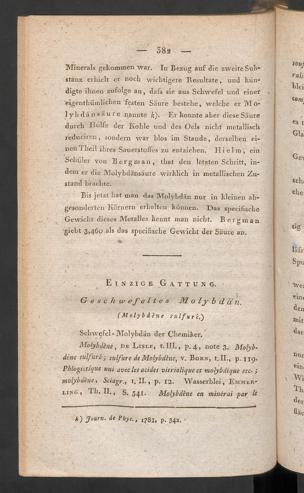 — 382 —
Minerals gekommen war. In Bezug auf die zweite Sub-
stanz erhielt er noch wichtigere Resultate, und kün-
digte ihnen zufolge an, daſs sie aus Schwefel und einer
eigenthümlichen festen Säure bestehe, welche er Mo-
lybdänsäure nannte k). Er konnte aber diese Säure
durch Hülfe der Kohle und des Oels nicht metallisch
reduciren, sondern war blos im Stande, derselben ei-
nen Theil ihres Sauerstoffes zu entziehen. Hielm, ein
Schüler von Bergman, that den letzten Schritt, in-
dem er die Molybdänsäure wirklich in metallischen Zu-
stand brachte.
Bis jetzt hat man das Molybdän nur in kleinen ab-
gesonderten Körnern erhalten können. Das specifische
Gewicht dieses Metalles kennt man nicht. Bergman
giebt 3,460 als das specifische Gewicht der Säure an.
EINZIGE GATTUNG.
Geschwefeltes Molybdän.
(Molybdène sulfuré.)
Schwefel-Molybdän der Chemiker.
Molybdène, DE LISLE, t. III., p. 4, note 3. Molyb-
dène sulfuré; sulfure de Molybdène, v. BORN, t. II., p. 119.
Phlogistique uni avec les acides vitriolique et molybdique etc.;
molybdène, Sciagr., t. II., p. 12. Wasserblei, EMMER-
LING, Th. II., S. 541. Molybdène en minérai par le
k) Journ. de Phys., 1782, p. 342.